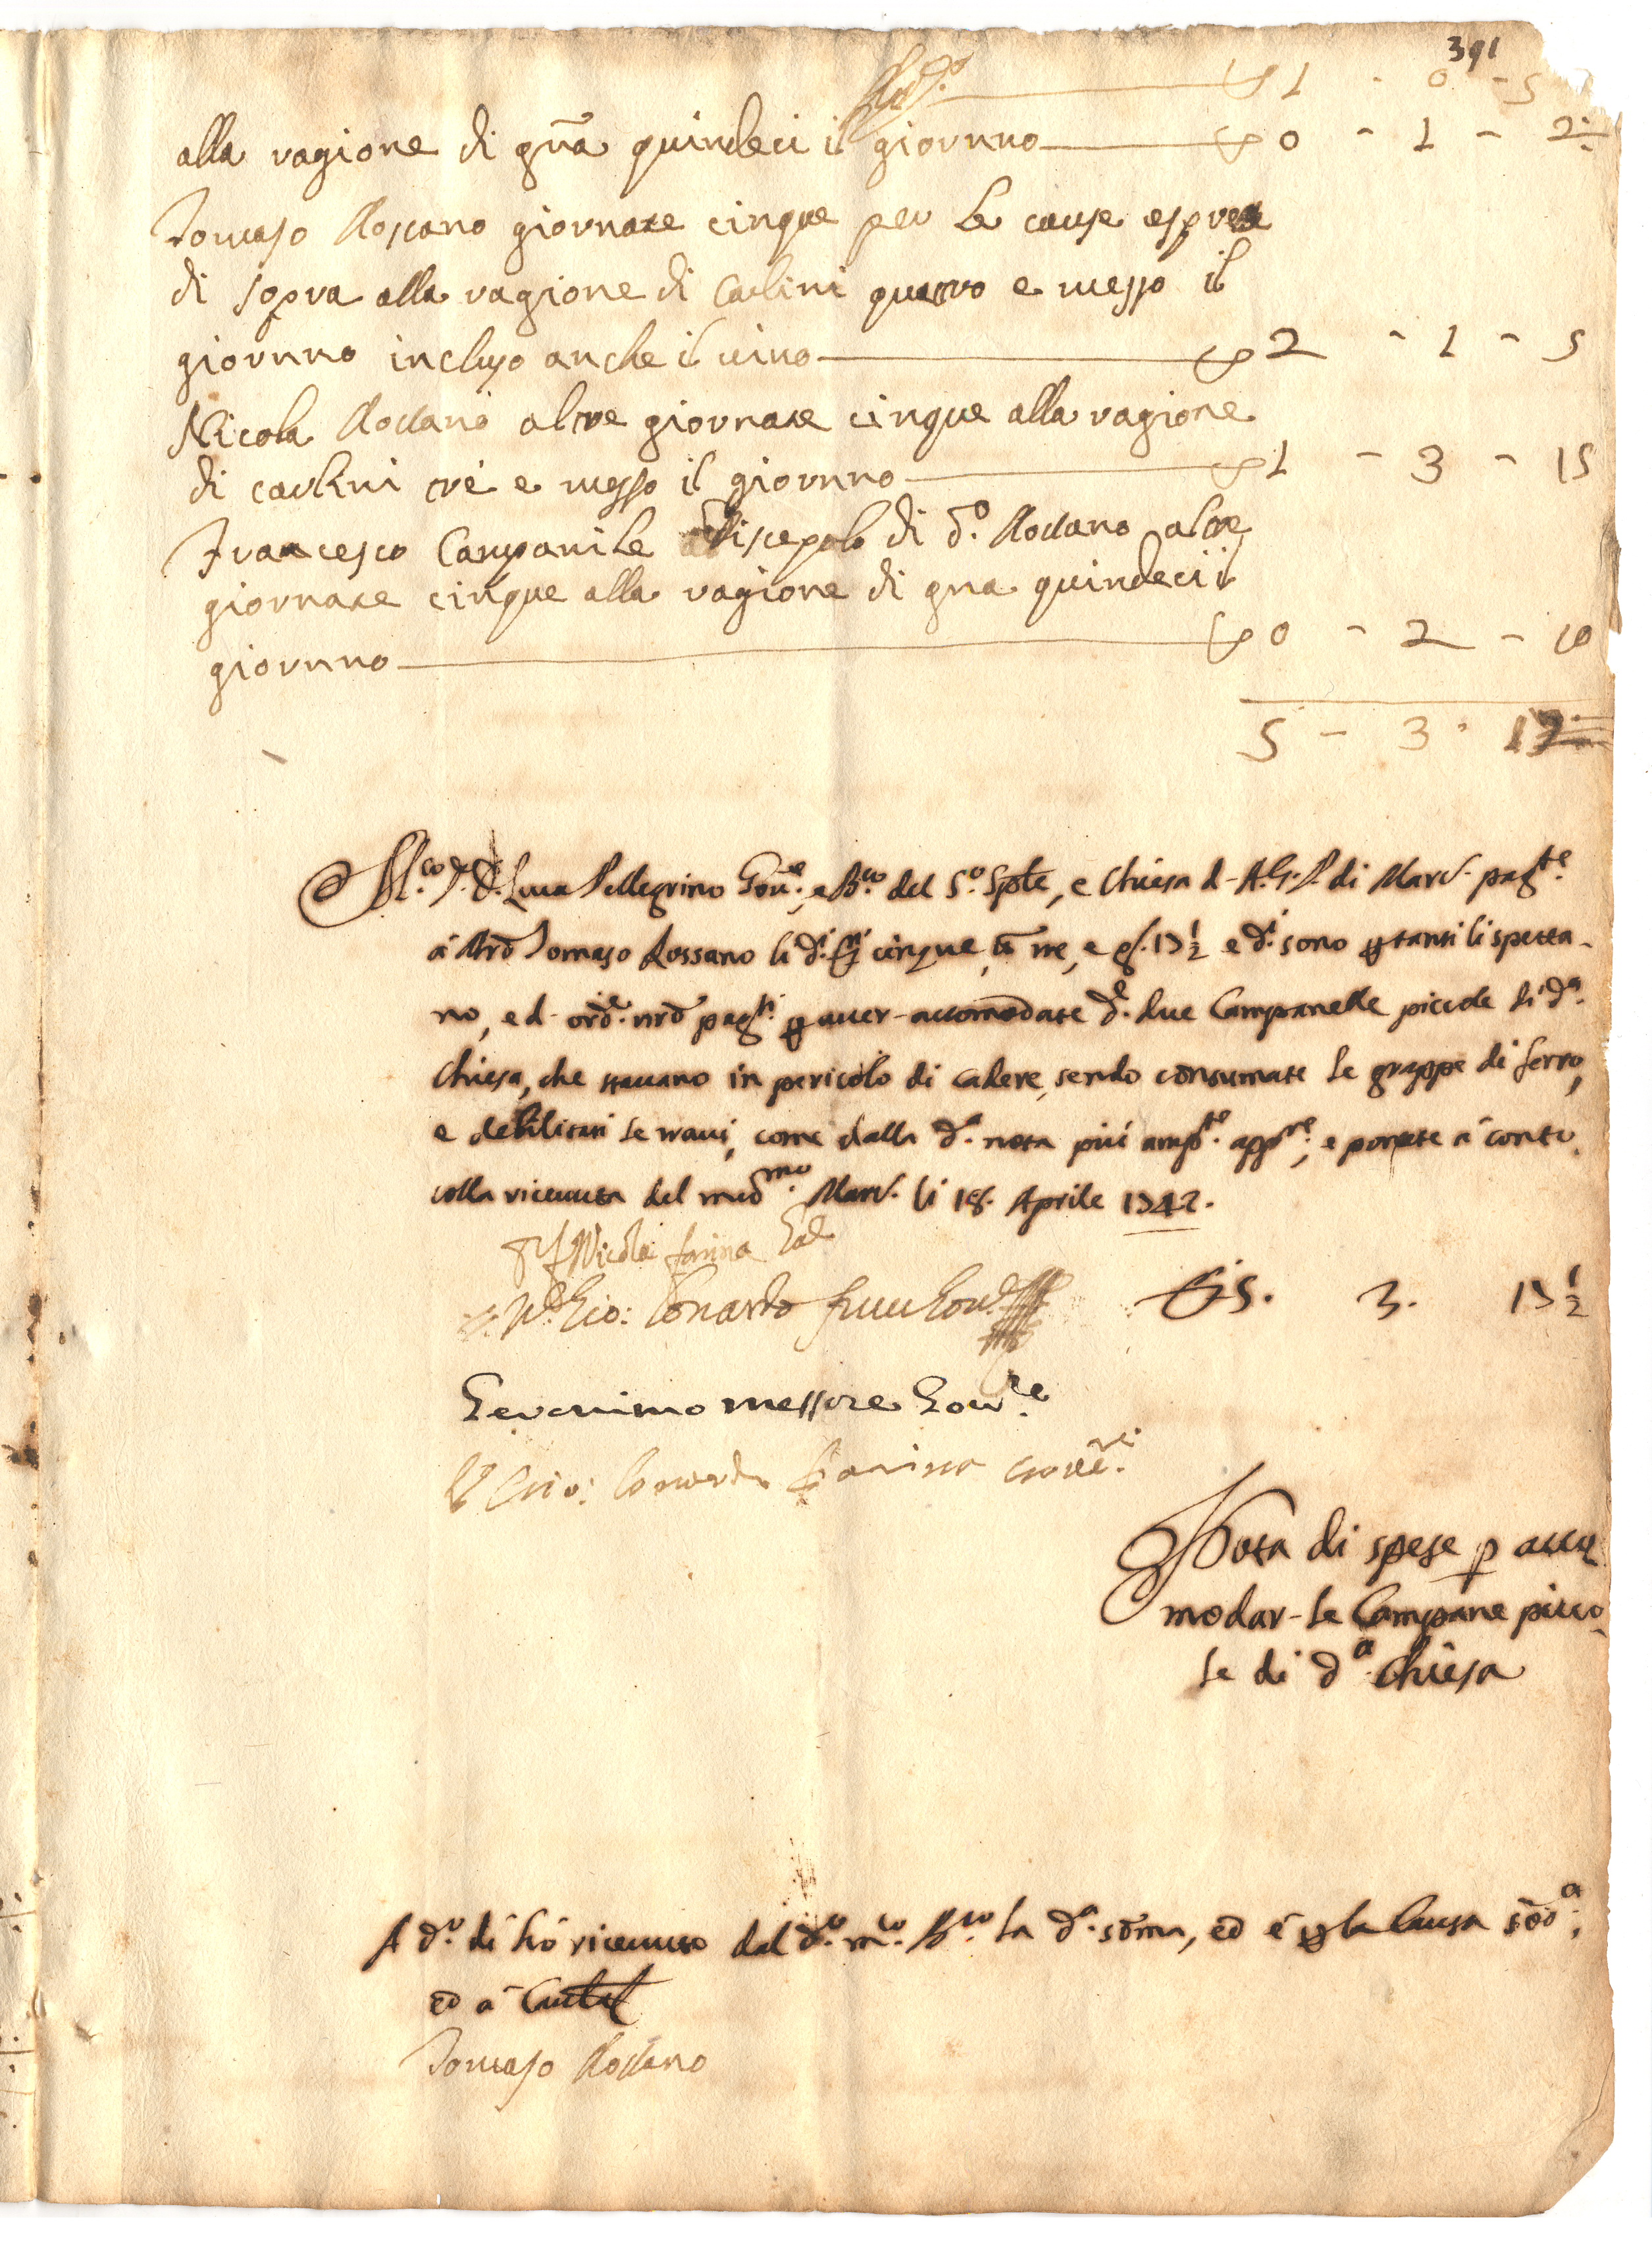 391
1 - 0 - 5
alla ragione di gña quindeci il giornno 0 - 1 - 2:
Tomaso Rossano giornate cinque per le cause espresse
di sopra alla ragione di Carlini quattro e messo il
giornno incluso anche il vino 2 - 1 - 5
Nicola Rossano altre giornate cinque alla ragione
di carlini tré e messo il giornno 1 - 3 - 15
Francesco Campanile Discepolo di d.º Rossano altre
giornate cinque alla ragione di gna quindeci il
giornno 0 - 2 - 10
5 - 3 - 17
M.co D. Luca Pellegrino Gov.re, e B.co del S.º Spto, e Chiesa d. A. G. P. di Marc. pag.te
à Mrõ Tomaso Rossano li d.i cinque, tt tre, e g. 17½ e d.i sono p tanti li spetta-
no, e d. ord.e nrõ pag.ti p aver accomodate d.e due Campanelle piccole di d.a
Chiesa, che stavano in pericolo di cadere, sendo consumate le grappe di ferro,
e debilitati le travi, come dalla d.a nota più amp.te app.re, e ponete à conto
colla ricevuta del med.mo Marc. li 18. Aprile 1742.
Nicola farina
Gio: Lonardo
5. 3. 17½
Geronimo messere Gov.re
Gio: Lonardo Farina Gov.re
Nota di spese p acco
modar-le Campane picco-
le di d.a Chiesa
A d.º di hò ricevuto dal d.º m.co B.co la d.a sõma, ed è p la causa sõd.a,
ed à Cautel
Tomaso Rossano